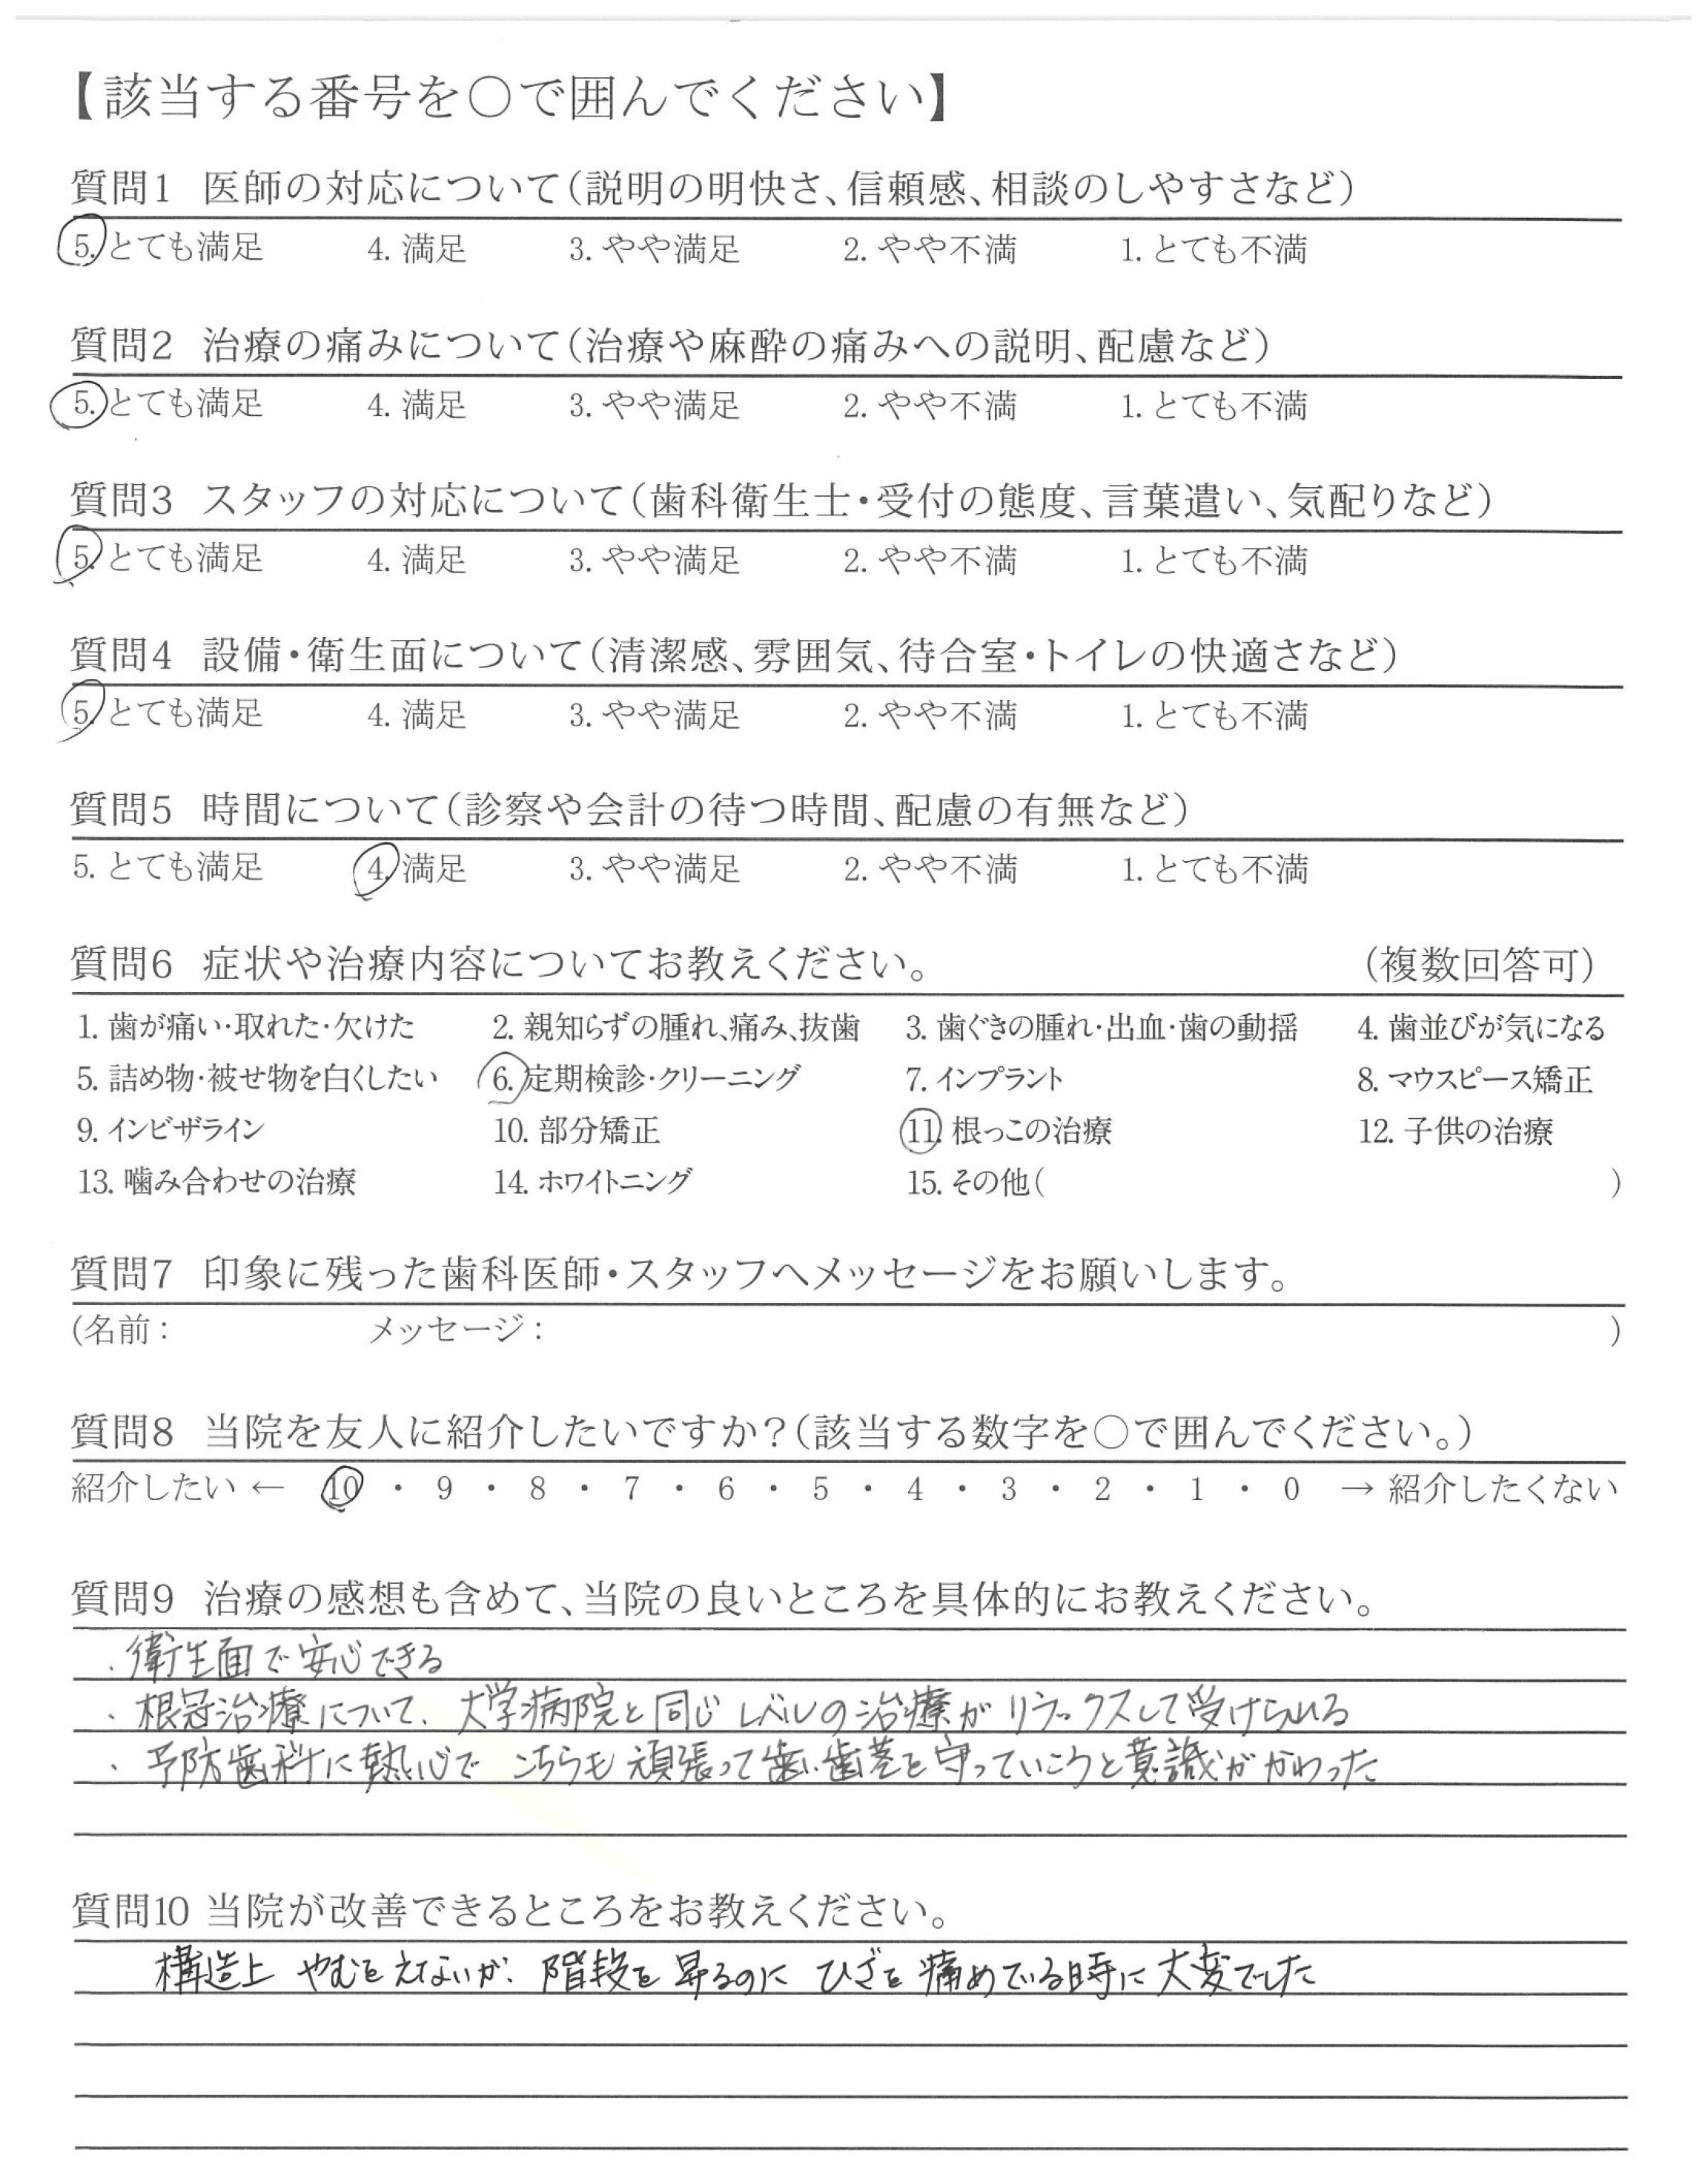 【該当する番号を○で囲んでください】
質問1 医師の対応について（説明の明快さ、信頼感、相談のしやすさなど）
5. とても満足 4. 満足 3. やや満足 2. やや不満 1. とても不満
質問2 治療の痛みについて（治療や麻酔の痛みへの説明、配慮など）
5. とても満足 4. 満足 3. やや満足 2. やや不満 1. とても不満
質問3 スタッフの対応について（歯科衛生士・受付の態度、言葉遣い、気配りなど）
5. とても満足 4. 満足 3. やや満足 2. やや不満 1. とても不満
質問4 設備・衛生面について（清潔感、雰囲気、待合室・トイレの快適さなど）
5. とても満足 4. 満足 3. やや満足 2. やや不満 1. とても不満
質問5 時間について（診察や会計の待つ時間、配慮の有無など）
5. とても満足 4. 満足 3. やや満足 2. やや不満 1. とても不満
質問6 症状や治療内容についてお教えください。 （複数回答可）
1. 歯が痛い・取れた・欠けた 2. 親知らずの腫れ、痛み、抜歯 3. 歯ぐきの腫れ・出血・歯の動揺 4. 歯並びが気になる
5. 詰め物・被せ物を白くしたい 6. 定期検診・クリーニング 7. インプラント 8. マウスピース矯正
9. インビザライン 10. 部分矯正 11. 根っこの治療 12. 子供の治療
13. 噛み合わせの治療 14. ホワイトニング 15. その他（ ）
質問7 印象に残った歯科医師・スタッフへメッセージをお願いします。
(名前： メッセージ： )
質問8 当院を友人に紹介したいですか？（該当する数字を○で囲んでください。）
紹介したい ← 10 ・ 9 ・ 8 ・ 7 ・ 6 ・ 5 ・ 4 ・ 3 ・ 2 ・ 1 ・ 0 → 紹介したくない
質問9 治療の感想も含めて、当院の良いところを具体的にお教えください。
・衛生面で安心できる
・根冠治療について、大学病院と同じレベルの治療がリラックスして受けられる
・予防歯科に熱心で こちらも頑張って歯、歯茎を守っていこうと意識がかわった
質問10 当院が改善できるところをお教えください。
構造上 やむをえないが、階段を昇るのに ひざを痛めている時に大変でした